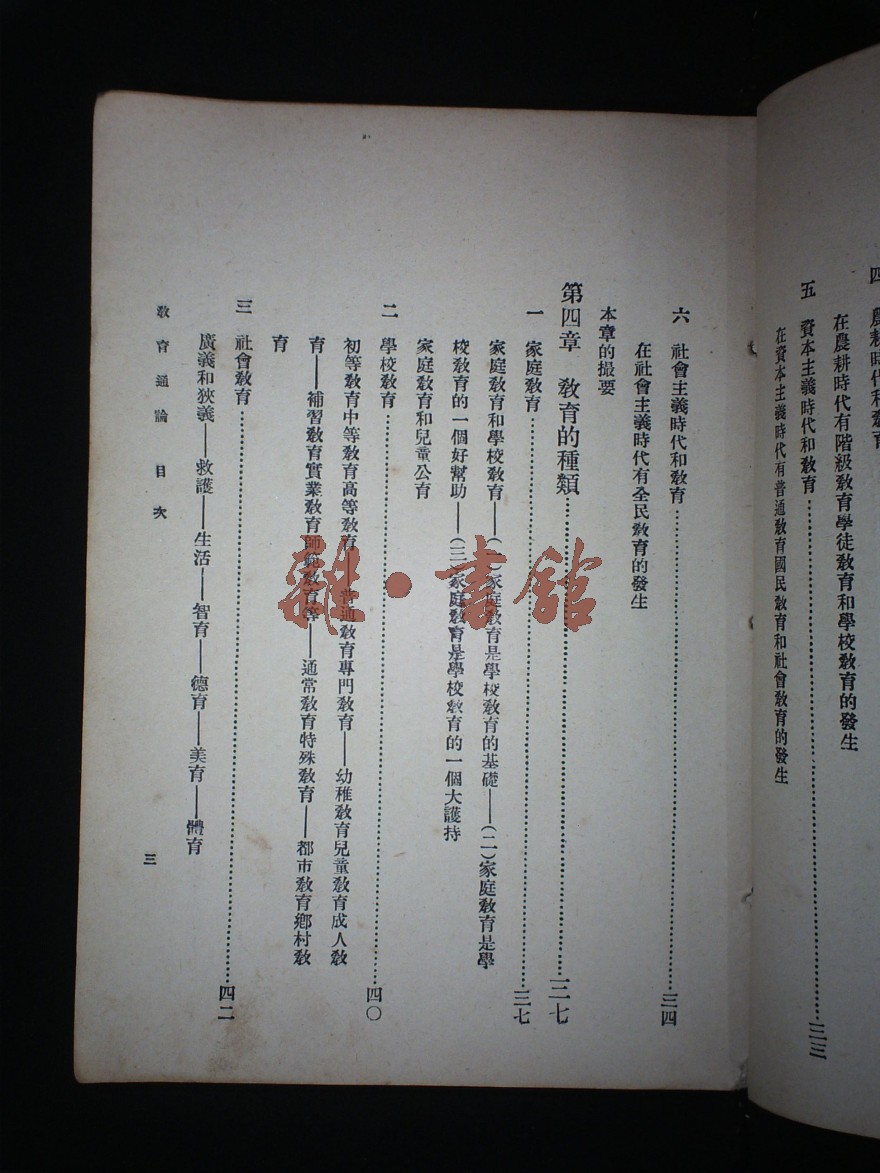 在農耕時代有階級敎育學徒敎育和學校敎育的發生
五　資本主義時代和敎育……………三三
在資本主義時代有普通敎育國民敎育和社會敎育的發生
六　社會主義時代和敎育……………三四
在社會主義時代有全民敎育的發生
本章的撮要
第四章　敎育的種類……………三七
一　家庭敎育……………三七
家庭敎育和學校敎育——(一)家庭敎育是學校敎育的基礎——(二)家庭敎育是學
校敎育的一個好幫助——(三)家庭敎育是學校敎育的一個大護持
家庭敎育和兒童公育
二　學校敎育……………四〇
初等敎育中等敎育高等敎育——普通敎育專門敎育——幼稚敎育兒童敎育成人敎
育——補習敎育實業敎育師範敎育等——通常敎育特殊敎育——都市敎育鄉村敎
育
三　社會敎育……………四二
廣義和狹義——救護——生活——智育——德育——美育——體育
敎育通論　目次
三
雜·書館